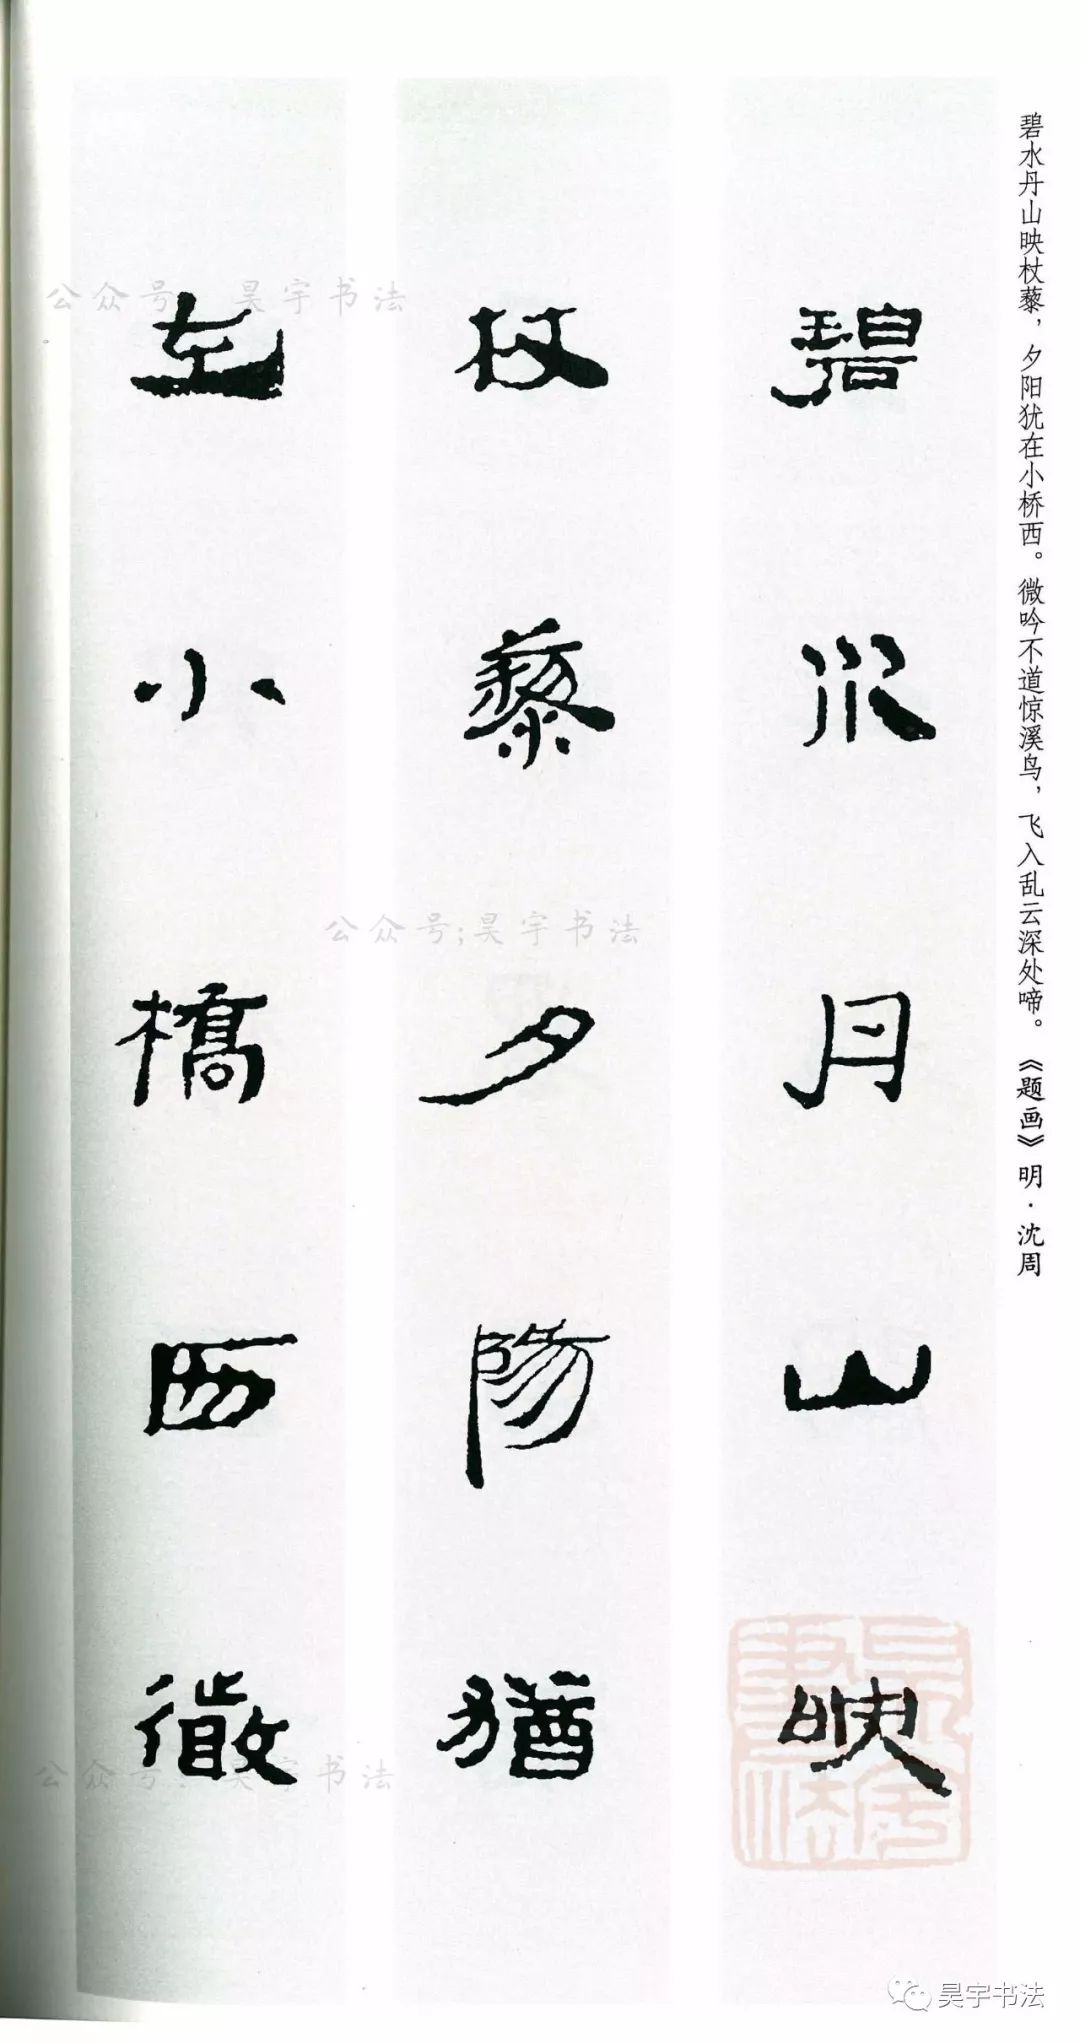 碧水丹山映杖藜，夕阳犹在小桥西。微吟不道惊溪鸟，飞入乱云深处啼。《题画》明·沈周
碧水丹山映
杖藜夕陽猶
在小橋西微
公众号：昊宇书法
公众号;昊宇书法
公众号：昊宇书法
昊宇书法
昊宇书法